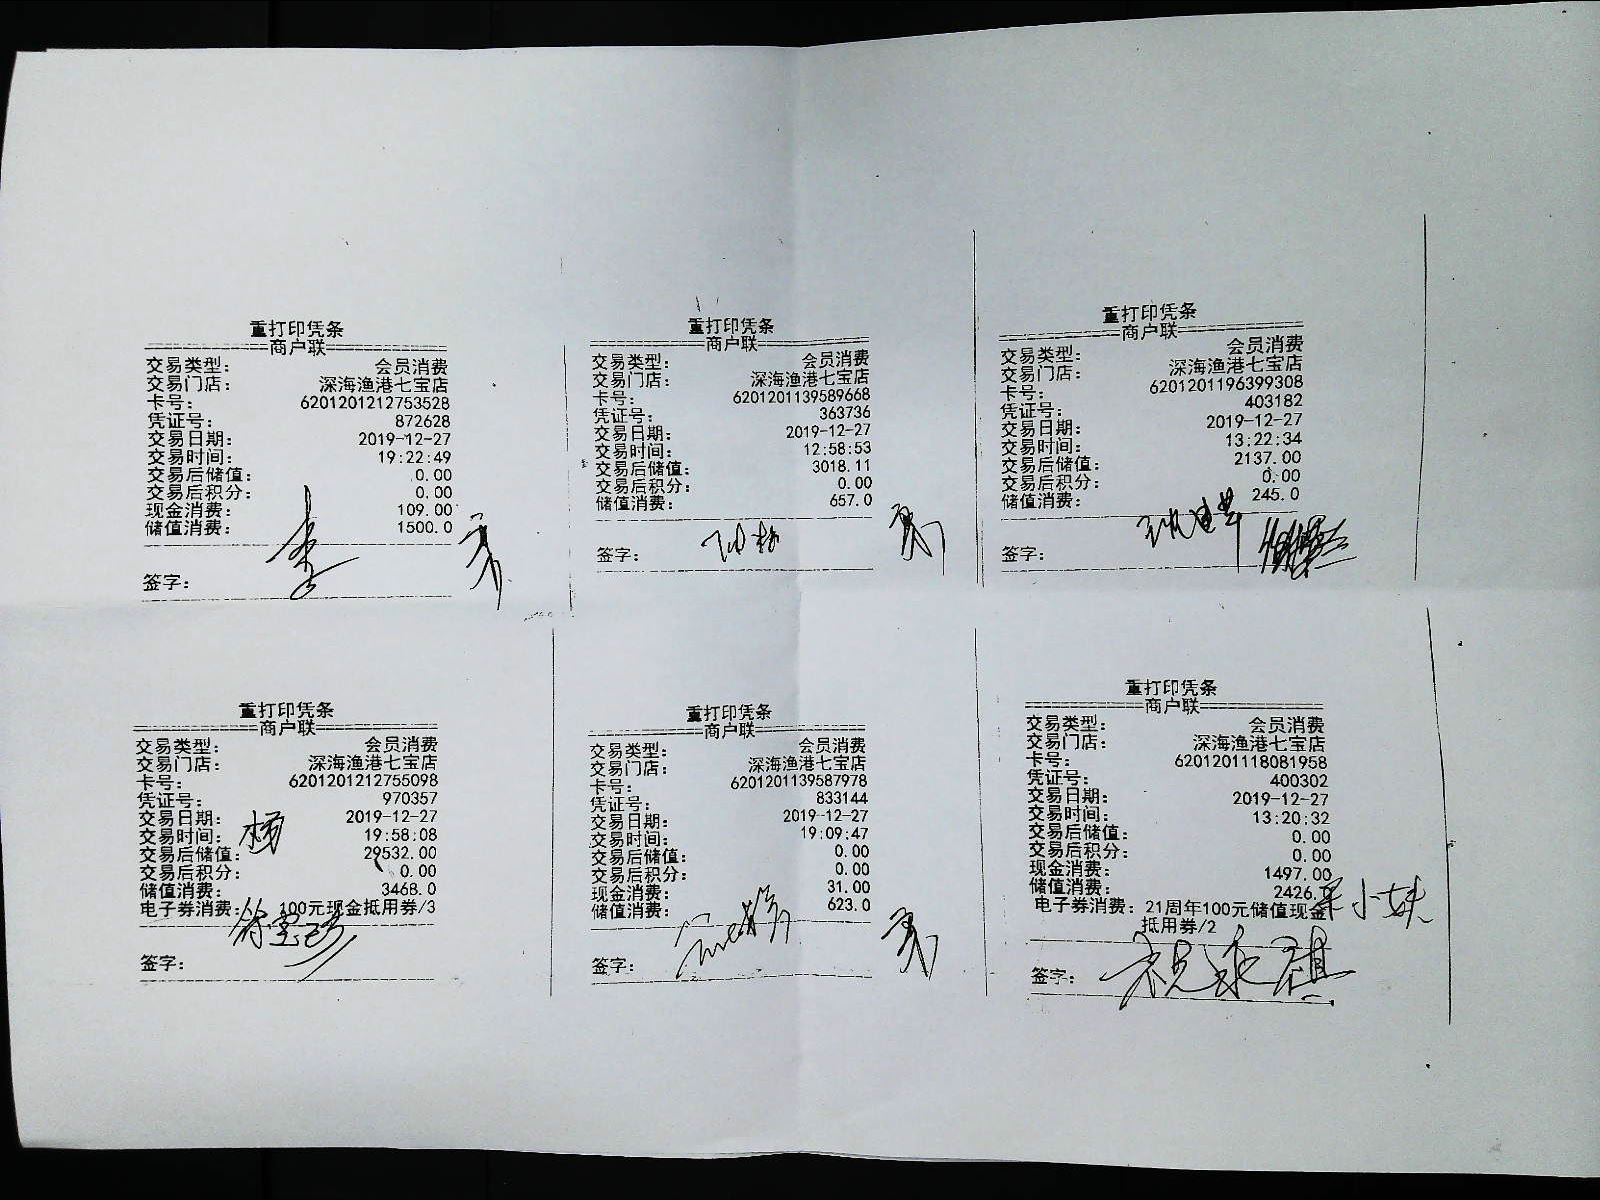 重打印凭条
商户联
交易类型: 会员消费
交易门店: 深海渔港七宝店
卡号: 6201201212753528
凭证号: 872628
交易日期: 2019-12-27
交易时间: 19:22:49
交易后储值: 0.00
交易后积分: 0.00
现金消费: 109.00
储值消费: 1500.0
李
签字:
重打印凭条
商户联
交易类型: 会员消费
交易门店: 深海渔港七宝店
卡号: 6201201139589668
凭证号: 363736
交易日期: 2019-12-27
交易时间: 12:58:53
交易后储值: 3018.11
交易后积分: 0.00
储值消费: 657.0
签字:
重打印凭条
商户联
交易类型: 会员消费
交易门店: 深海渔港七宝店
卡号: 6201201196399308
凭证号: 403182
交易日期: 2019-12-27
交易时间: 13:22:34
交易后储值: 2137.00
交易后积分: 0.00
储值消费: 245.0
签字:
重打印凭条
商户联
交易类型: 会员消费
交易门店: 深海渔港七宝店
卡号: 6201201212755098
凭证号: 970357
交易日期: 2019-12-27
交易时间: 19:58:08
杨
交易后储值: 29532.00
交易后积分: 0.00
储值消费: 3468.0
电子券消费: 100元现金抵用券/3
签字:
重打印凭条
商户联
交易类型: 会员消费
交易门店: 深海渔港七宝店
卡号: 6201201139587978
凭证号: 833144
交易日期: 2019-12-27
交易时间: 19:09:47
交易后储值: 0.00
交易后积分: 0.00
现金消费: 31.00
储值消费: 623.0
签字:
重打印凭条
商户联
交易类型: 会员消费
交易门店: 深海渔港七宝店
卡号: 6201201118081958
凭证号: 400302
交易日期: 2019-12-27
交易时间: 13:20:32
交易后储值: 0.00
交易后积分: 0.00
现金消费: 1497.00
储值消费: 2426.
小妹
电子券消费: 21周年100元储值现金
抵用券/2
签字: 祝永祺